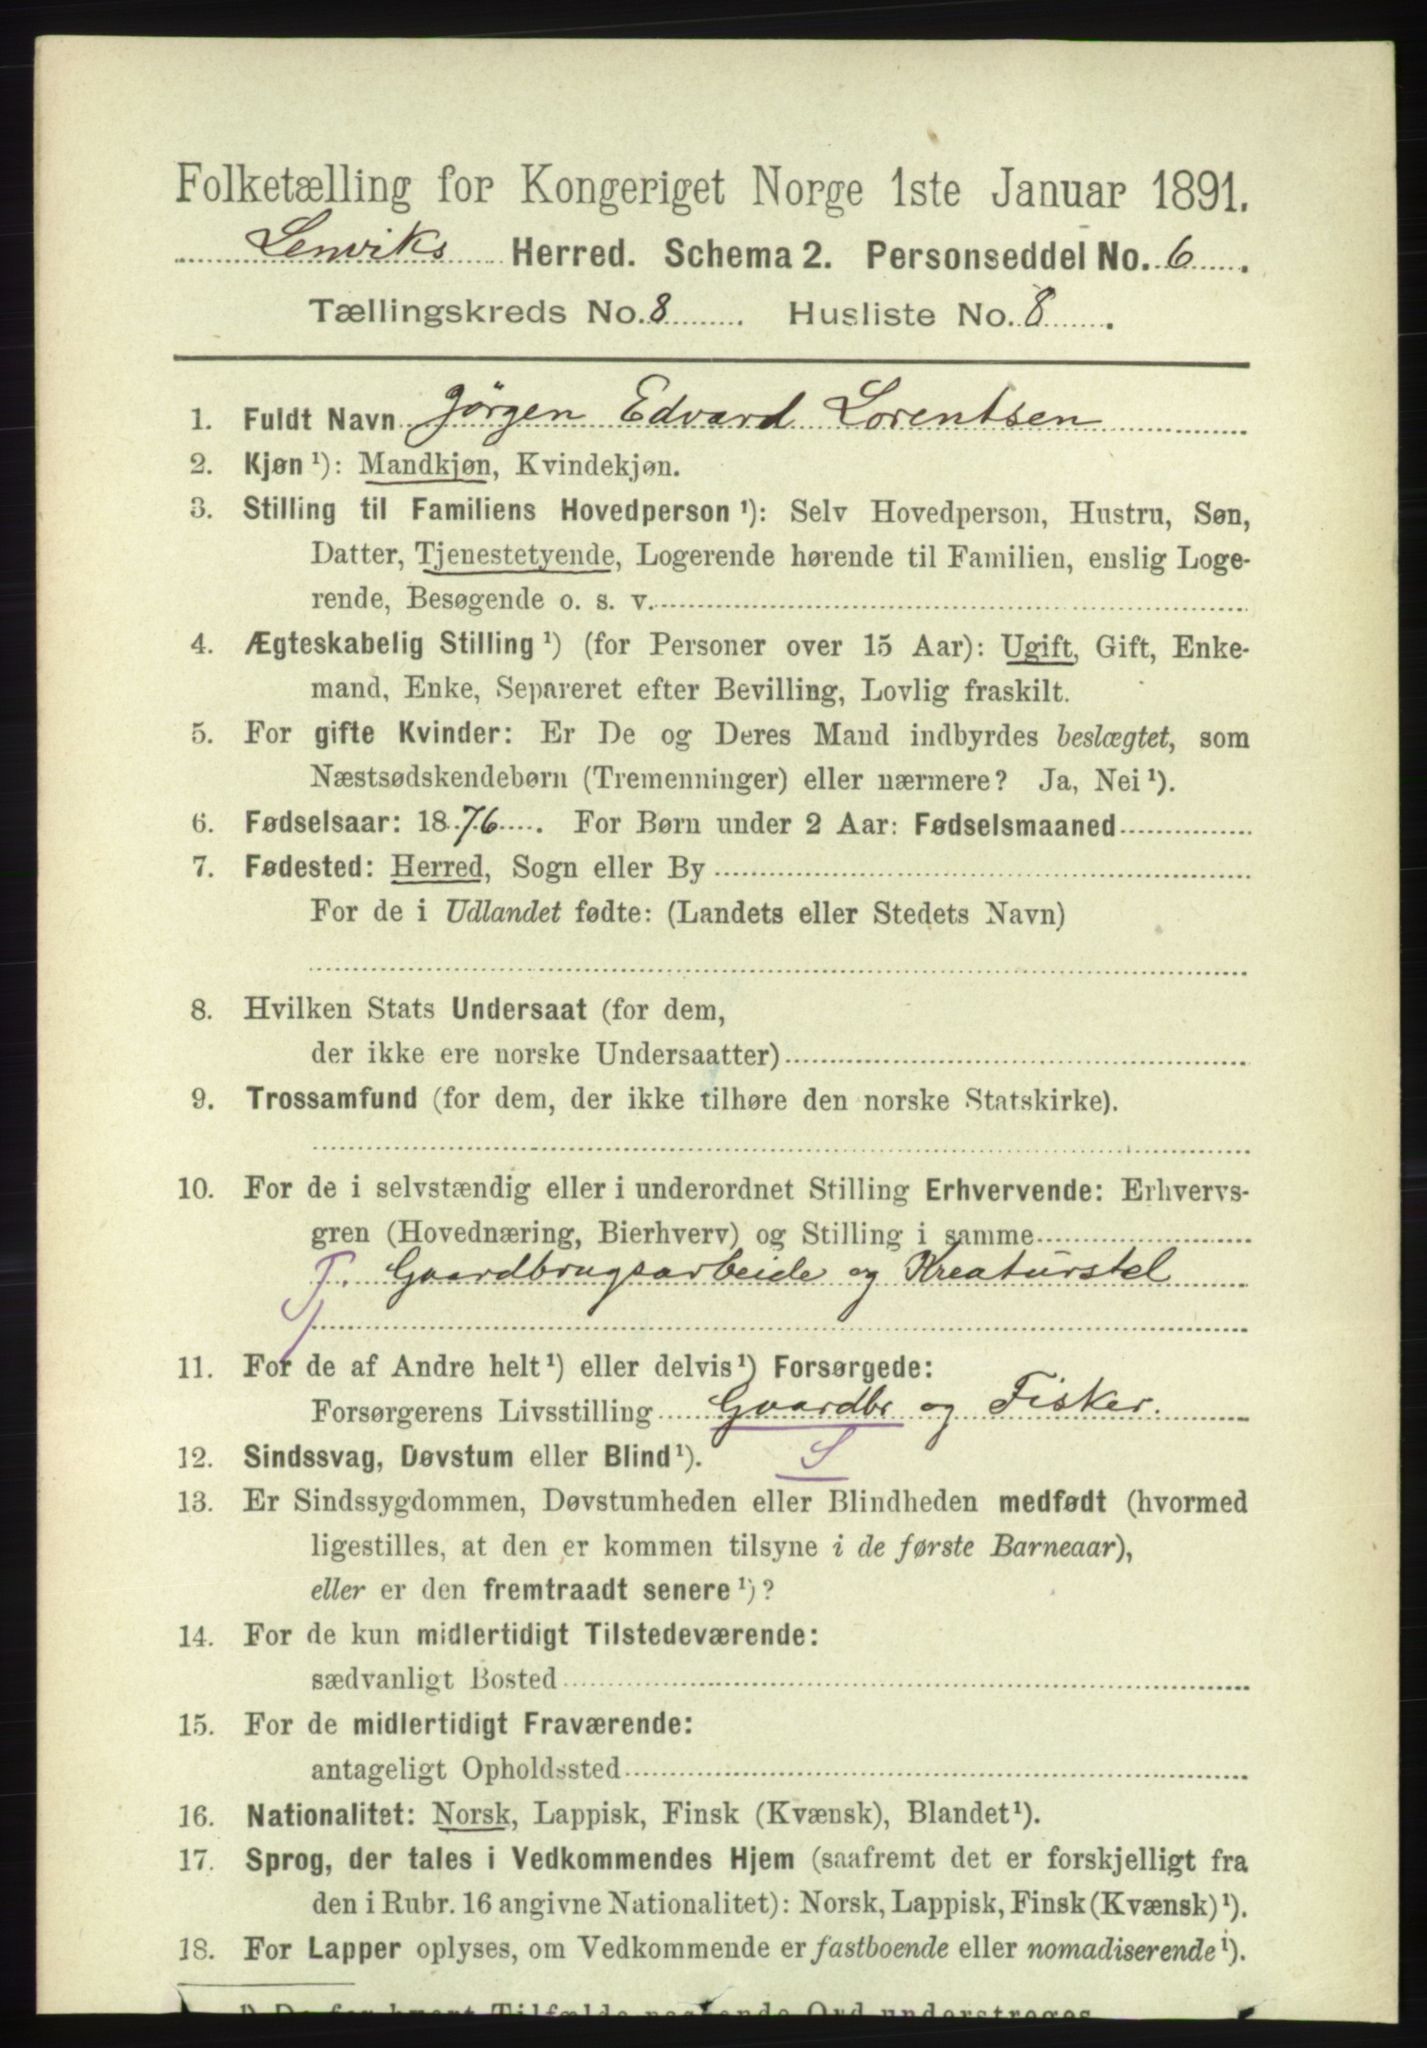 Folketælling for Kongeriget Norge 1ste Januar 1891.
Lenviks Herred. Schema 2. Personseddel No. 6.
Tællingskreds No. 8. Husliste No. 8.
1. Fuldt Navn Jørgen Edvard Lorentsen
2. Kjøn ¹): Mandkjøn, Kvindekjøn.
3. Stilling til Familiens Hovedperson ¹): Selv Hovedperson, Hustru, Søn,
Datter, Tjenestetyende, Logerende hørende til Familien, enslig Loge-
rende, Besøgende o. s. v.
4. Ægteskabelig Stilling ¹) (for Personer over 15 Aar): Ugift, Gift, Enke-
mand, Enke, Separeret efter Bevilling, Lovlig fraskilt.
5. For gifte Kvinder: Er De og Deres Mand indbyrdes beslægtet, som
Næstsødskendebørn (Tremenninger) eller nærmere? Ja, Nei ¹).
6. Fødselsaar: 1876. For Børn under 2 Aar: Fødselsmaaned
7. Fødested: Herred, Sogn eller By
For de i Udlandet fødte: (Landets eller Stedets Navn)
8. Hvilken Stats Undersaat (for dem,
der ikke ere norske Undersaatter)
9. Trossamfund (for dem, der ikke tilhøre den norske Statskirke).
10. For de i selvstændig eller i underordnet Stilling Erhvervende: Erhvervs-
gren (Hovednæring, Bierhverv) og Stilling i samme
T. Gaardbrugsarbeide og Kreaturstel
11. For de af Andre helt ¹) eller delvis ¹) Forsørgede:
Forsørgerens Livsstilling Gaardbr og Fisker.
12. Sindssvag, Døvstum eller Blind ¹). S
13. Er Sindssygdommen, Døvstumheden eller Blindheden medfødt (hvormed
ligestilles, at den er kommen tilsyne i de første Barneaar),
eller er den fremtraadt senere ¹)?
14. For de kun midlertidigt Tilstedeværende:
sædvanligt Bosted
15. For de midlertidigt Fraværende:
antageligt Opholdssted
16. Nationalitet: Norsk, Lappisk, Finsk (Kvænsk), Blandet ¹).
17. Sprog, der tales i Vedkommendes Hjem (saafremt det er forskjelligt fra
den i Rubr. 16 angivne Nationalitet): Norsk, Lappisk, Finsk (Kvænsk) ¹).
18. For Lapper oplyses, om Vedkommende er fastboende eller nomadiserende ¹).
¹) De for hvert Tilfælde passende Ord understreges.